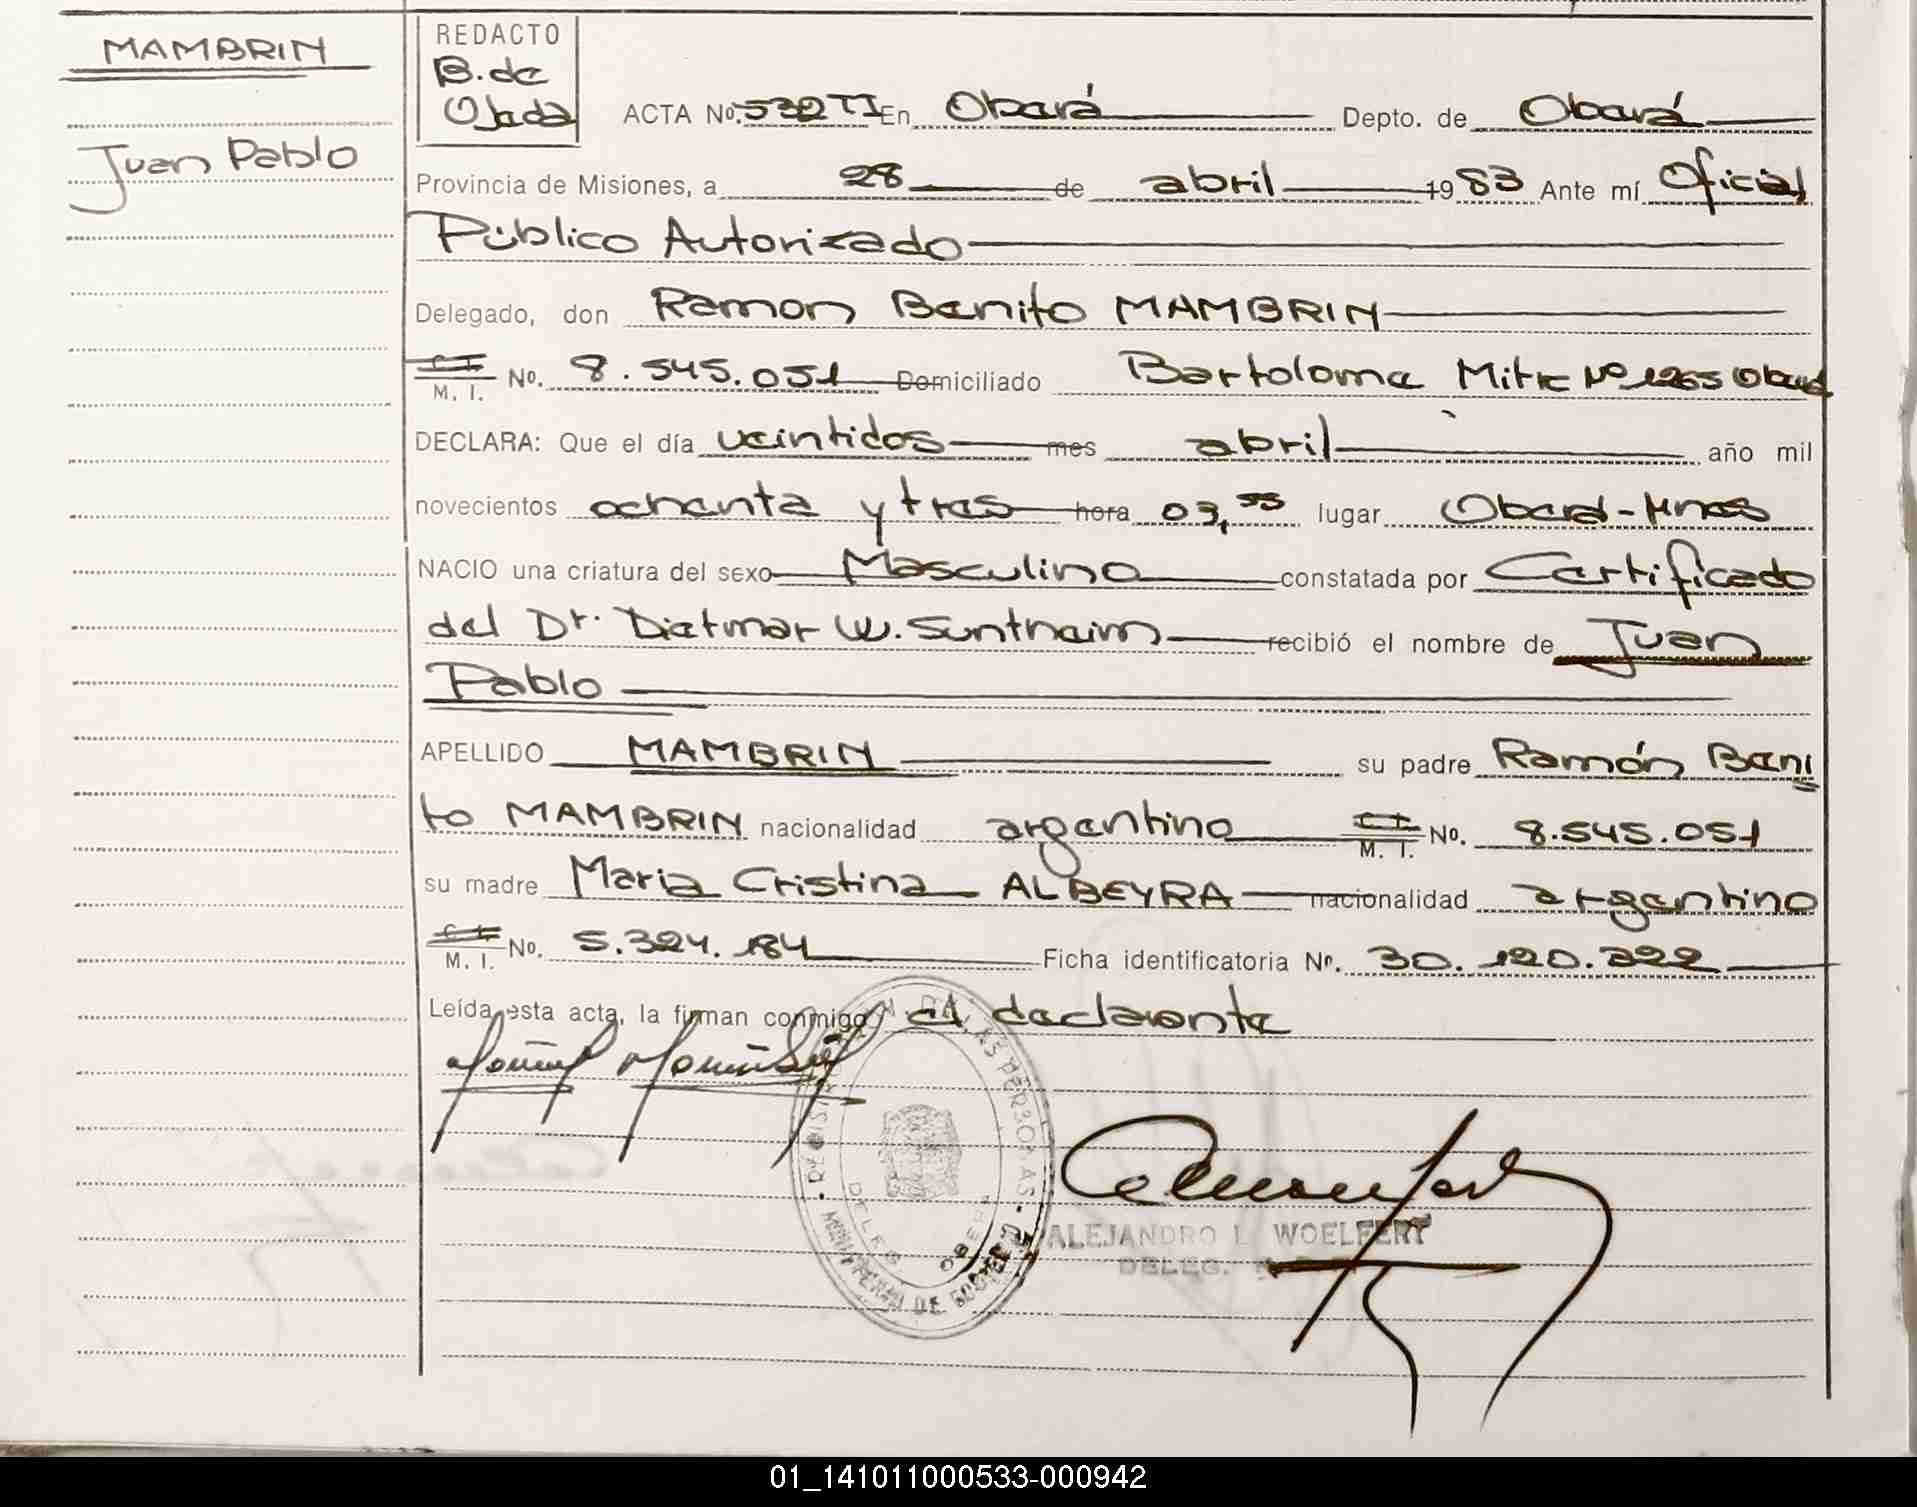 MAMBRIN
Juan Pablo
REDACTO
B. de
Ojeda
ACTA No. 532 TI En Oberá Depto. de Oberá
Provincia de Misiones, a 28 de abril 1983 Ante mí Oficial
Público Autorizado
Delegado, don Ramon Benito MAMBRIN
C I
M. I. No. 8.545.051 Domiciliado Bartolome Mitre Nº 1265 Oberá
DECLARA: Que el día veintidos mes abril año mil
novecientos ochenta y tres hora 03,55 lugar Oberá-Mnes
NACIO una criatura del sexo Masculino constatada por Certificado
del Dr. Dietmar W. Sontheim recibió el nombre de Juan
Pablo
APELLIDO MAMBRIN su padre Ramón Beni
to MAMBRIN nacionalidad argentino C I M. I. No. 8.545.051
su madre Maria Cristina ALBEYRA nacionalidad argentino
C I M. I. No. 5.324.184 Ficha identificatoria No. 30.120.222
Leída esta acta, la firman conmigo el declarente
DELEG. OBERA
ALEJANDRO L. WOELFERT
DELEG.
01_141011000533-000942